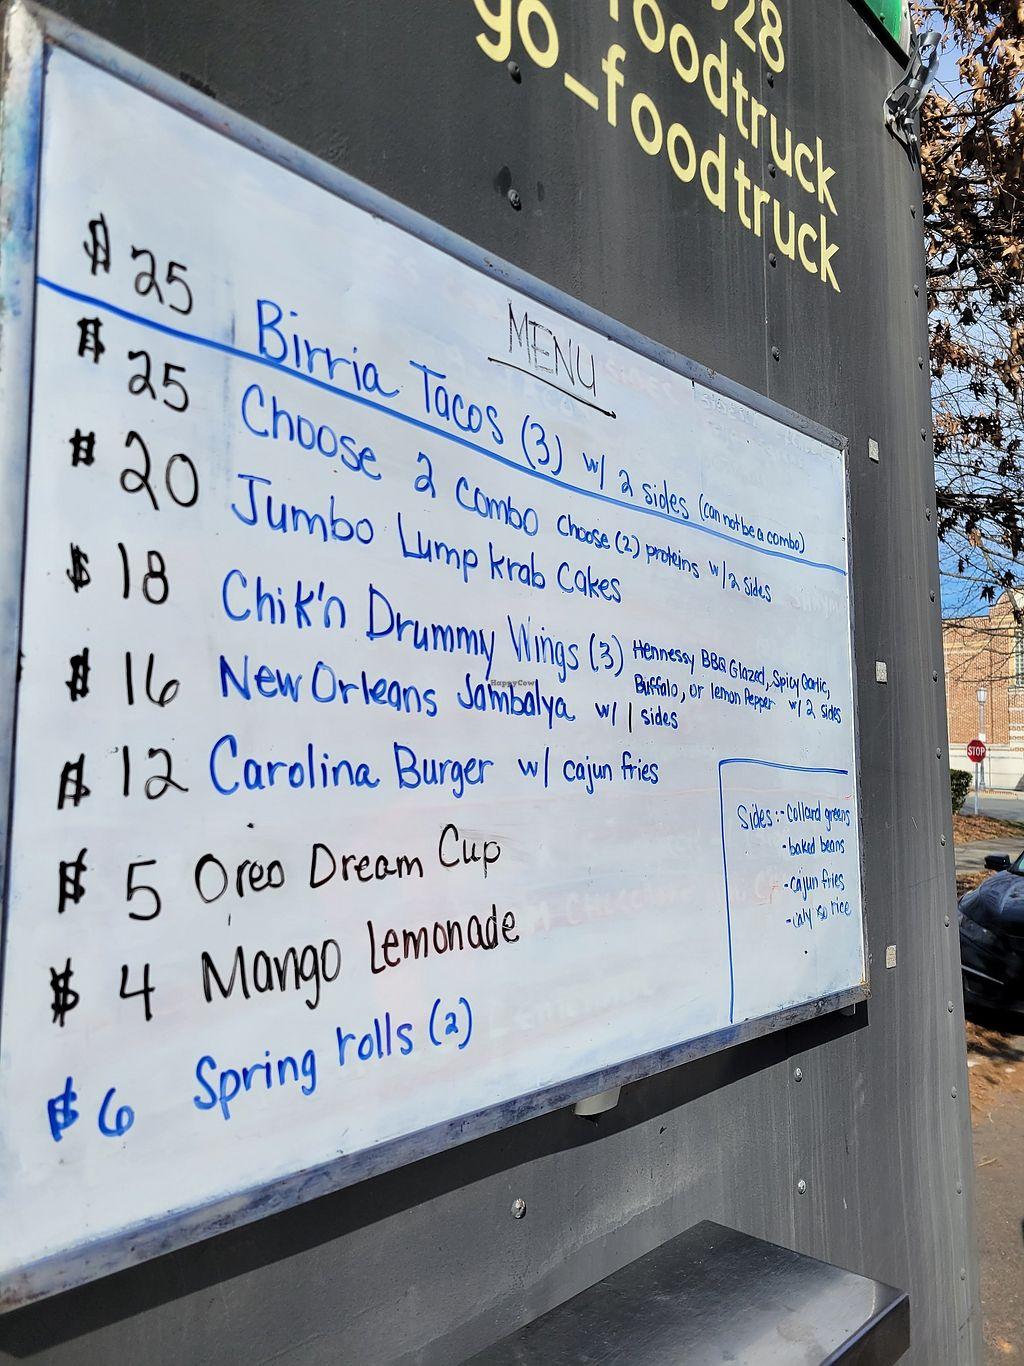 28
foodtruck
go_foodtruck
MENU
$25 Birria Tacos (3) w/ 2 sides (can not be a combo)
$25 Choose 2 combo choose (2) proteins w/ 2 sides
$20 Jumbo Lump krab Cakes
$18 Chik'n Drummy Wings (3) Hennessy BBQ Glazed, Spicy Garlic,
Buffalo, or lemon Pepper w/ 2 sides
$16 New Orleans Jambalya w/ 1 sides
$12 Carolina Burger w/ cajun fries
$5 Oreo Dream Cup
$4 Mango Lemonade
$6 Spring rolls (2)
Sides:-collard greens
-baked beans
-cajun fries
rice
HappyCow
STOP